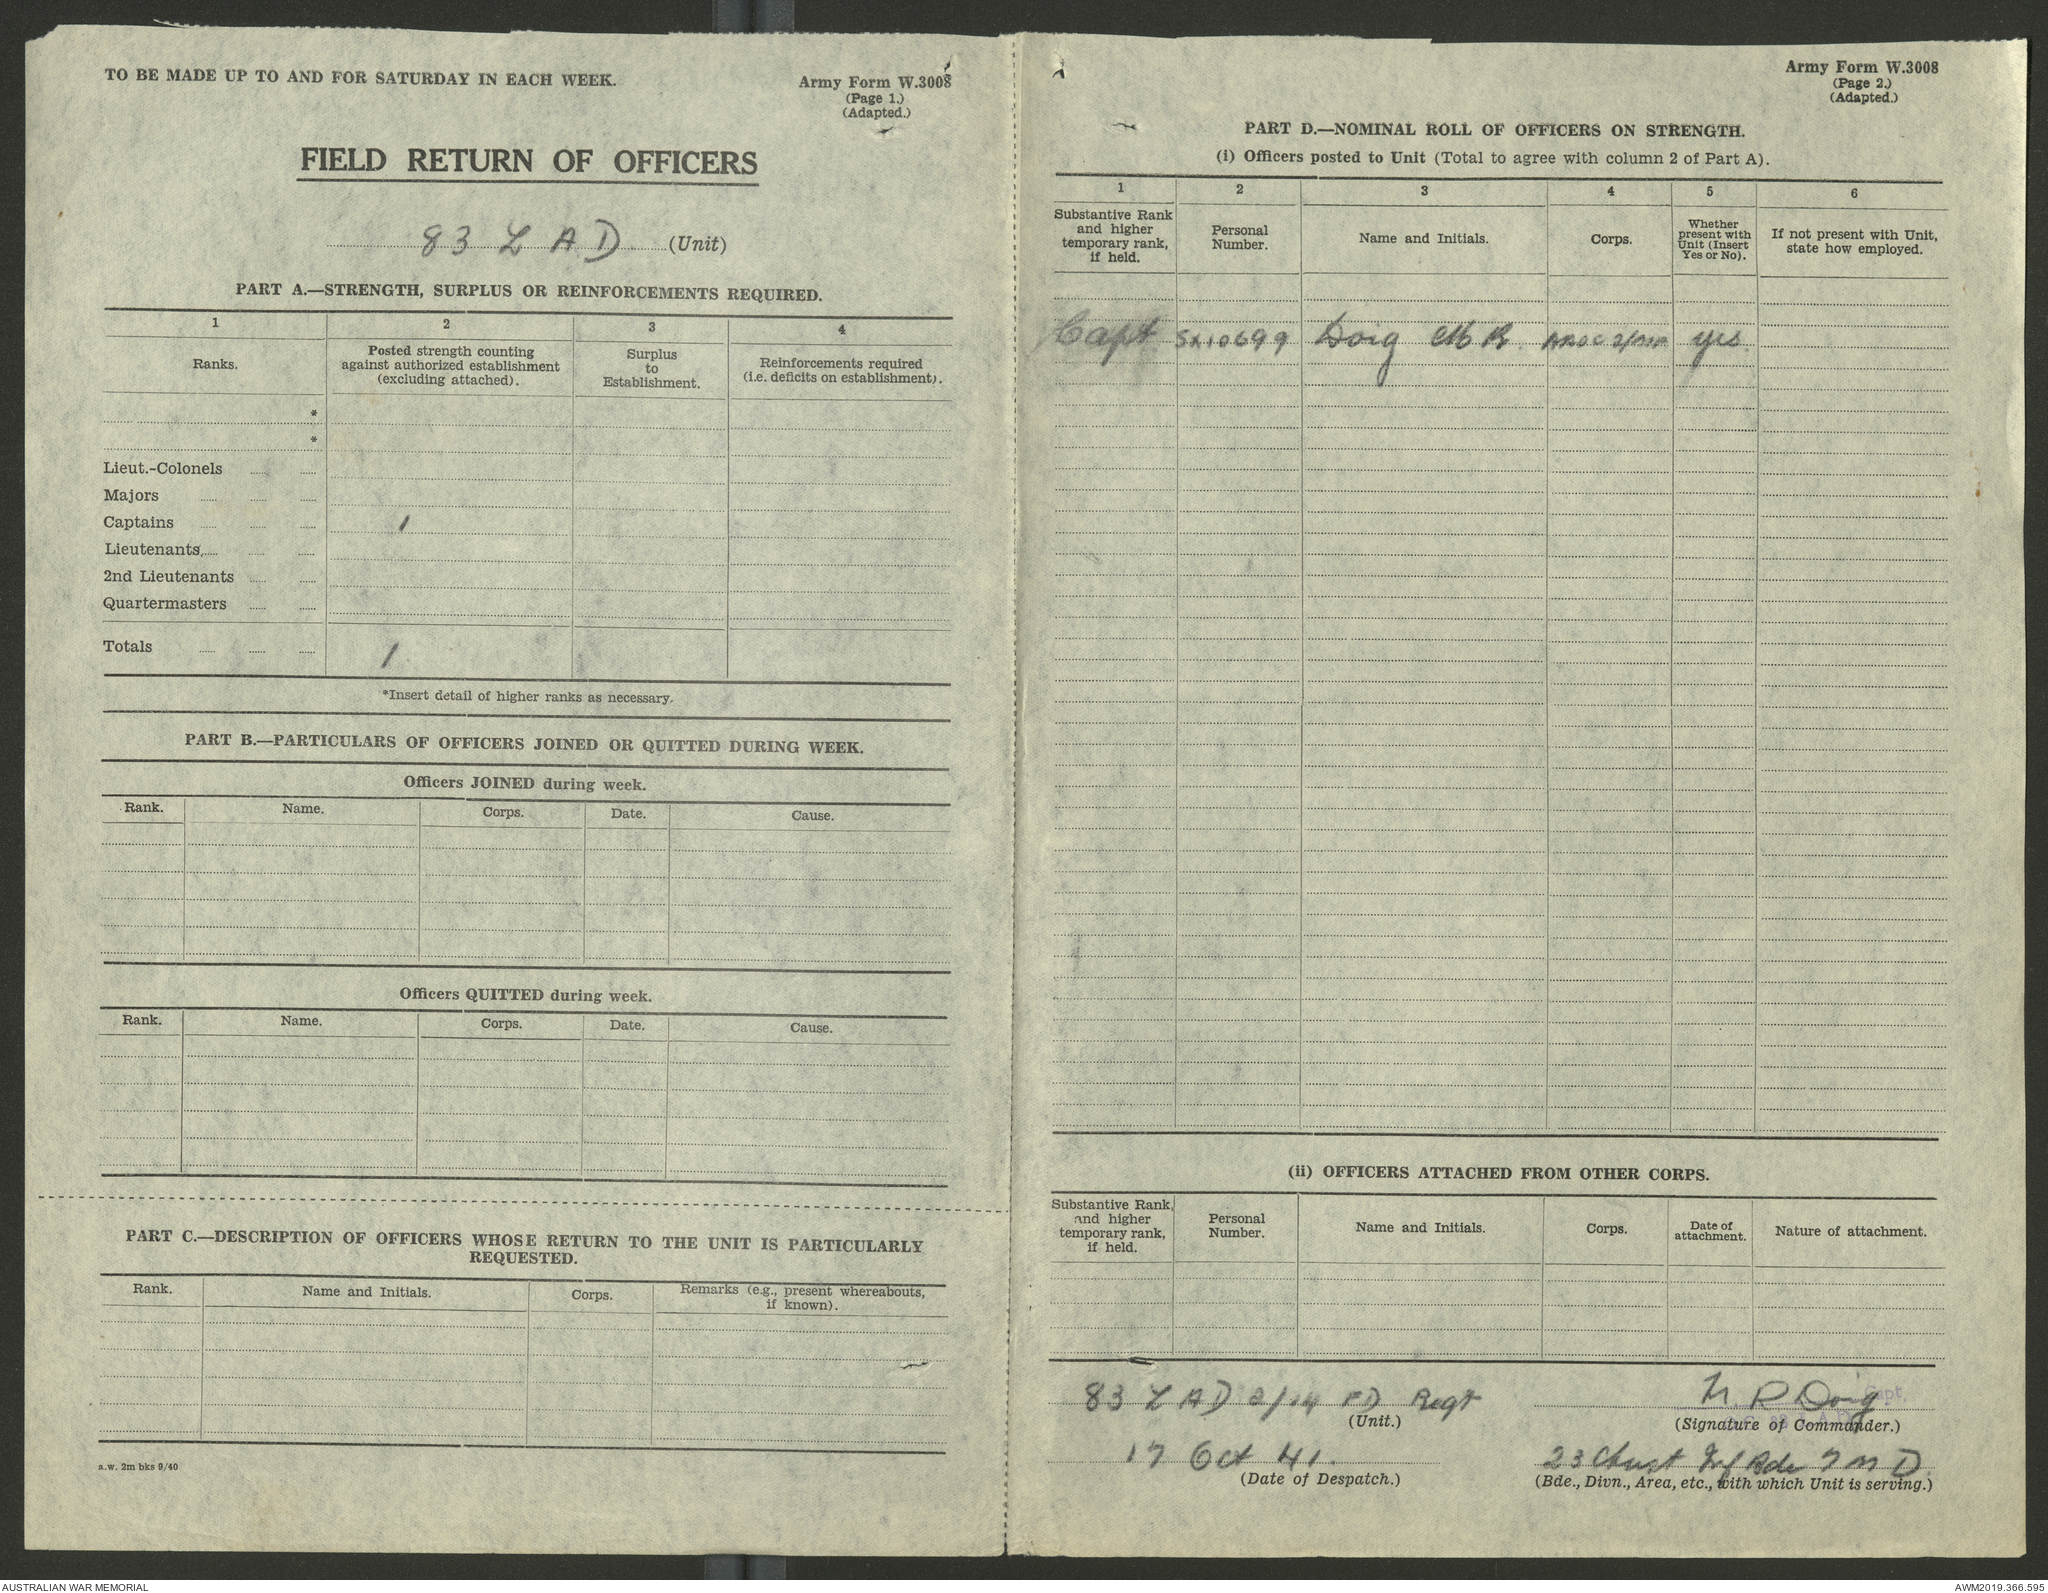 TO BE MADE UP TO AND FOR SATURDAY IN EACH WEEK.
Army Form W.3008
(Page 1.)
(Adapted.)
FIELD RETURN OF OFFICERS
83 L A D (Unit)
PART A.—STRENGTH, SURPLUS OR REINFORCEMENTS REQUIRED.
1 2 3 4
Ranks.
Posted strength counting
against authorized establishment
(excluding attached).
Surplus
to
Establishment.
Reinforcements required
(i.e. deficits on establishment).
*
*
Lieut.-Colonels
Majors
Captains 1
Lieutenants
2nd Lieutenants
Quartermasters
Totals 1
*Insert detail of higher ranks as necessary.
PART B.—PARTICULARS OF OFFICERS JOINED OR QUITTED DURING WEEK.
Officers JOINED during week.
Rank. Name. Corps. Date. Cause.
Officers QUITTED during week.
Rank. Name. Corps. Date. Cause.
PART C.—DESCRIPTION OF OFFICERS WHOSE RETURN TO THE UNIT IS PARTICULARLY
REQUESTED.
Rank. Name and Initials. Corps.
Remarks (e.g., present whereabouts,
if known).
a.w. 2m bks 9/40
Army Form W.3008
(Page 2.)
(Adapted.)
PART D.—NOMINAL ROLL OF OFFICERS ON STRENGTH.
(i) Officers posted to Unit (Total to agree with column 2 of Part A).
1 2 3 4 5 6
Substantive Rank
and higher
temporary rank,
if held.
Personal
Number.
Name and Initials.
Corps.
Whether
present with
Unit (Insert
Yes or No).
If not present with Unit,
state how employed.
Capt SX10699 Doig R yes
(ii) OFFICERS ATTACHED FROM OTHER CORPS.
Substantive Rank,
and higher
temporary rank,
if held.
Personal
Number.
Name and Initials.
Corps.
Date of
attachment.
Nature of attachment.
83 L A D 2/14 FD Regt
(Unit.)
R Doig
Capt.
(Signature of Commander.)
17 Oct 41.
(Date of Despatch.)
23 Inf Bde 7 M D
(Bde., Divn., Area, etc., with which Unit is serving.)
AUSTRALIAN WAR MEMORIAL
AWM2019.366.595